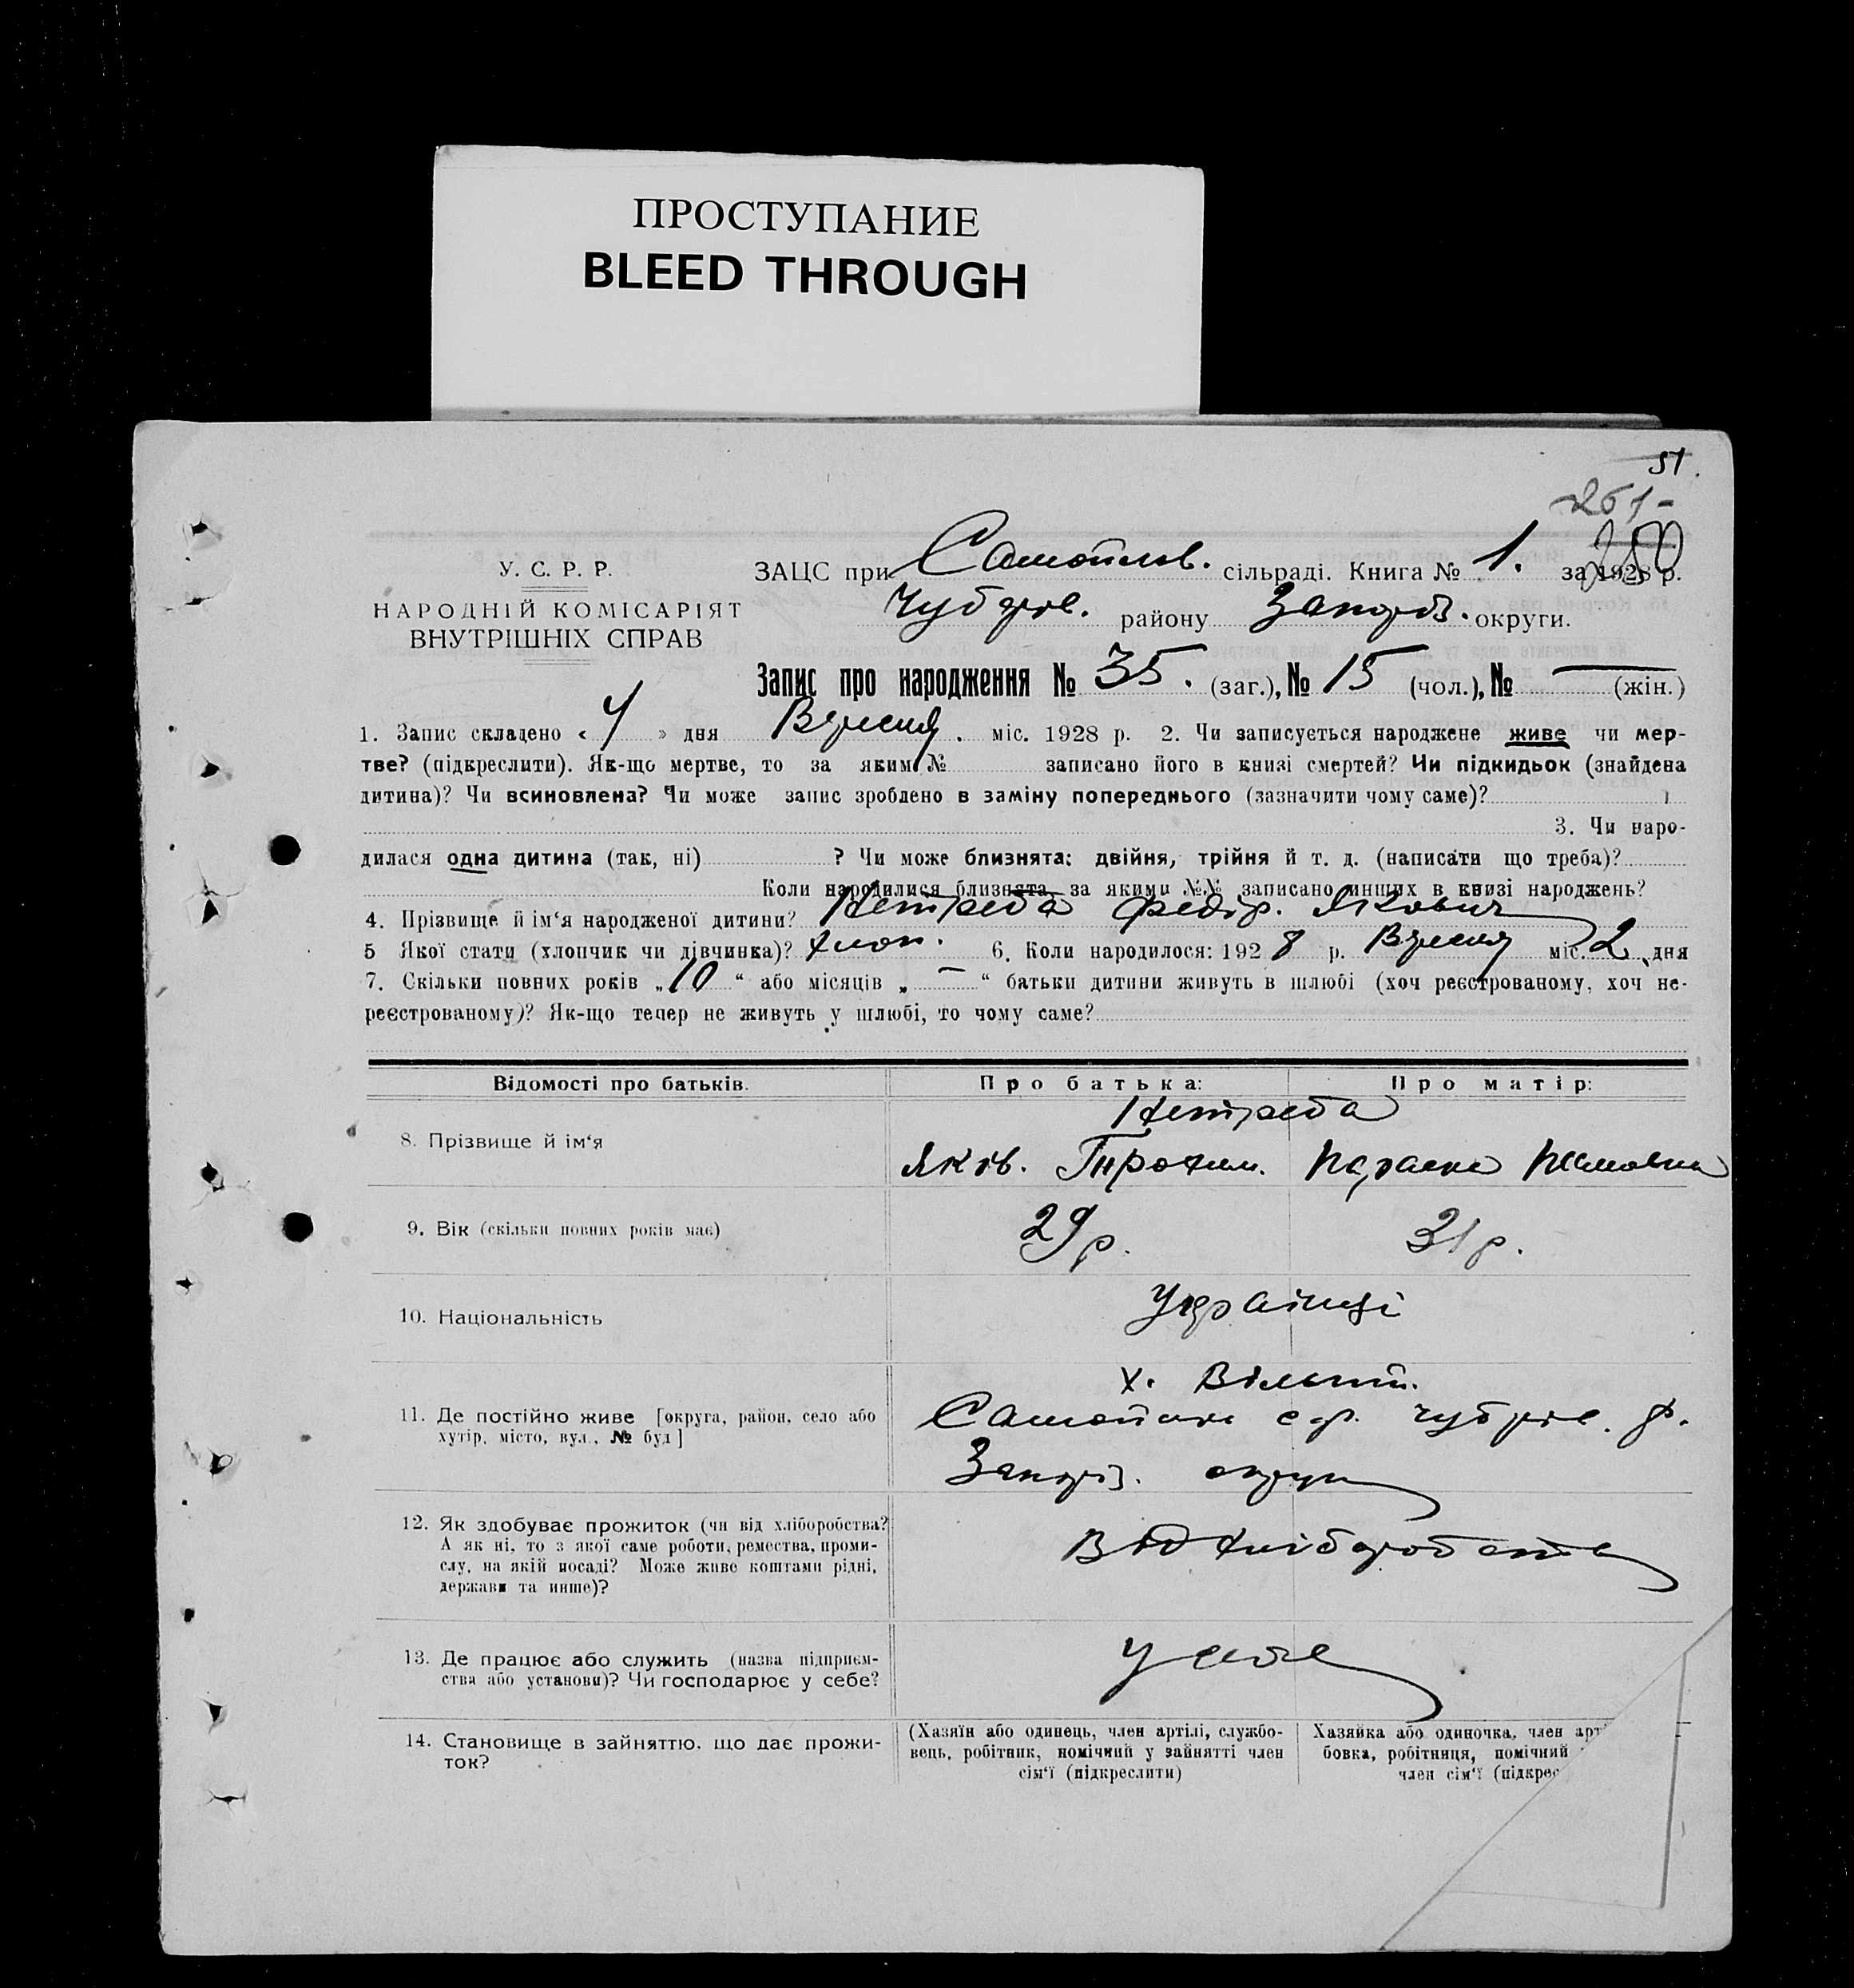 ПРОСТУПАНИЕ
BLEED THROUGH
51.
251-
У. С. Р. Р.
НАРОДНІЙ КОМІСАРІЯТ
ВНУТРІШНІХ СПРАВ
ЗАЦС при Самойлов. сільраді. Книга № 1. за 1928 р.
Чубарів. району Запоріз. округи.
Запис про народження № 35. (заг.), № 15 (чол.), № — (жін.)
1. Запис складено « 4 » дня Вересня. міс. 1928 р. 2. Чи записується народжене живе чи мер-
тве? (підкреслити). Як-що мертве, то за яким № записано його в книзі смертей? Чи підкидьок (знайдена
дитина)? Чи всиновлена? Чи може запис зроблено в заміну попереднього (зазначити чому саме)?
3. Чи наро-
дилася одна дитина (так, ні) ? Чи може близнята: двійня, трійня й т. д. (написати що треба)?
Коли народилися близнята, за якими №№ записано инших в книзі народжень?
4. Прізвище й ім'я народженої дитини? Нетреба Федір. Якович
5 Якої стати (хлопчик чи дівчинка)? хлоп. 6. Коли народилося: 1928 р. Вересня міс. 2 дня
7. Скільки повних років „10“ або місяців „—“ батьки дитини живуть в шлюбі (хоч реєстрованому, хоч не-
реєстрованому)? Як-що тепер не живуть у шлюбі, то чому саме?
Відомості про батьків. Про батька: Про матір:
Нетреба
8. Прізвище й ім'я Яків. Трохим. Параска
9. Вік (скільки повних років має) 29 р. 31 р.
10. Національність Українці
х. Вільний.
11. Де постійно живе [округа, район, село або
хутір, місто, вул., № буд]
Самойлів с/р. Чубарів. р.
Запоріз. округи
12. Як здобуває прожиток (чи від хліборобства?
А як ні, то з якої саме роботи, ремества, проми-
слу, на якій посаді? Може живе коштами рідні,
держави та инше)?
Від хліборобства
13. Де працює або служить (назва підприєм-
ства або установи)? Чи господарює у себе?
У себе
14. Становище в зайняттю, що дає прожи-
ток?
(Хазяїн або одинець, член артілі, службо-
вець, робітник, помічний у зайнятті член
сім'ї (підкреслити)
Хазяйка або одиночка, член арт
бовка, робітниця, помічний
член сім'ї (підкрес